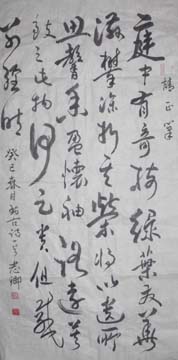 庭中有奇樹綠葉發華
滋攀條折其榮將以遺所
思馨香盈懷袖路遠莫
致之此物何足貴但感
別經時
癸巳春月